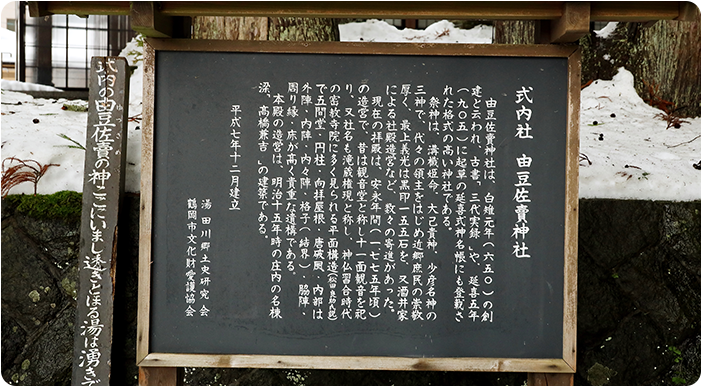 式内社　由豆佐賣神社
由豆佐賣神社は、白雉元年(六五〇)の創
建と云われ、古書、三代実録」や、延喜五年
(九〇五)に起草の延喜式神名帳にも登載さ
れた格式の高い神社である。
祭神は、溝樴姫命、大己貴神、少彦名神の
三神で、代々の領主をはじめ近郷庶民の崇敬
厚く、最上義光は黒印一五五石を、又酒井家
による社殿造営など、数々の寄進があった。
現在の拝殿は、安永年間(一七七五年頃)
の造営で、昔は観音堂と称し十一面観音を祀
り、又社名も滝蔵権現と称し、神仏習合時代
の密教寺院に多く見られる平面構造
で五間堂・円柱・向拝屋根・唐破風、内部は
外陣・内陣・内々陣・格子(結界)・脇陣・
周り縁・床が高く貴重な遺構である。
本殿の造営は、明治十五年時の庄内の名棟
梁、高橋兼吉」の建築である。
平成七年十二月建立
湯田川郷土史研究会
鶴岡市文化財愛護協会
式内の由豆佐賣の神ここにいまし透きとほる湯は湧きで